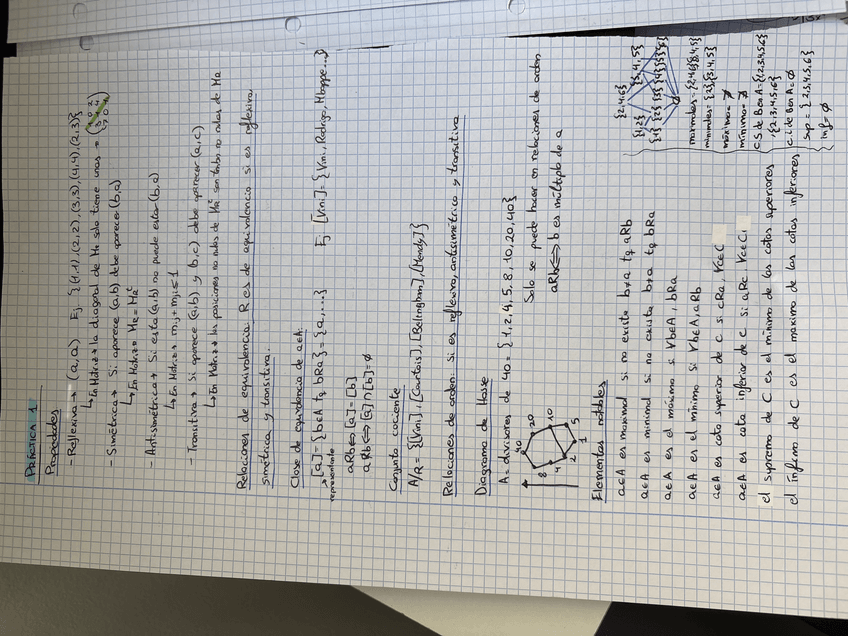 PRÁCTICA 1
Propiedades
- Reflexiva → (a,a) Ej {(1,1),(2,2),(3,3),(4,4),(2,3)}
↳ En Matriz → la diagonal de MR solo tiene unos →
- Simétrica → Si aparece (a,b) debe aparecer (b,a)
↳ En Matriz →
- Antisimétrica → Si esta (a,b) no puede estar (b,a)
↳ En Matriz → mij + mji ≤ 1
- Transitiva → Si aparece (a,b) y (b,c) debe aparecer (a,c)
↳ En Matriz → las posiciones no nulas de MR² son tambn no nulas de MR
Relaciones de equivalencia. R es de equivalencia si es reflexiva,
simétrica y transitiva.
Clase de equivalencia de a∈A:
[a] = {b∈A tq bRa} = {a,...} Ej [Vini] = {Vini, Rodrygo, Mbappe...}
representante
aRb ⟺ [a] = [b]
aRb ⟺ [a]∩[b] = ∅
Conjunto cociente
A/R = {[Vini],[Courtois],[Bellingham],[Mendy]}
Relaciones de orden: Si es reflexiva, antisimétrica y transitiva
Diagrama de Hasse
A = divisores de 40 = {1,2,4,5,8,10,20,40}
40
20
8
10
4
5
2
1
Solo se puede hacer en relaciones de orden
aRb ⟺ b es múltiplo de a
Elementos notables
a∈A es maximal si no existe b≠a tq aRb
a∈A es minimal si no existe b≠a tq bRa
a∈A es el máximo si ∀b∈A, bRa
a∈A es el mínimo si ∀b∈A, aRb
a∈A es cota superior de C si cRa, ∀c∈C
a∈A es cota inferior de C si aRc, ∀c∈C
el supremo de C es el mínimo de las cotas superiores
el ínfimo de C es el maximo de las cotas inferiores
{2,4,6} {3,4,5}
{1,2}
{1} {2} {3} {4} {5} {6}
∅
maximales = {2,4,6}{3,4,5}
minimales = {2}{3,4,5}
máximo = ∄
mínimo = ∄
C.S de B en A = {{2,3,4,5,6}
,{2,3,4,5,6}
C.i de B en A = ∅
Sup = {2,3,4,5,6}
inf = ∅